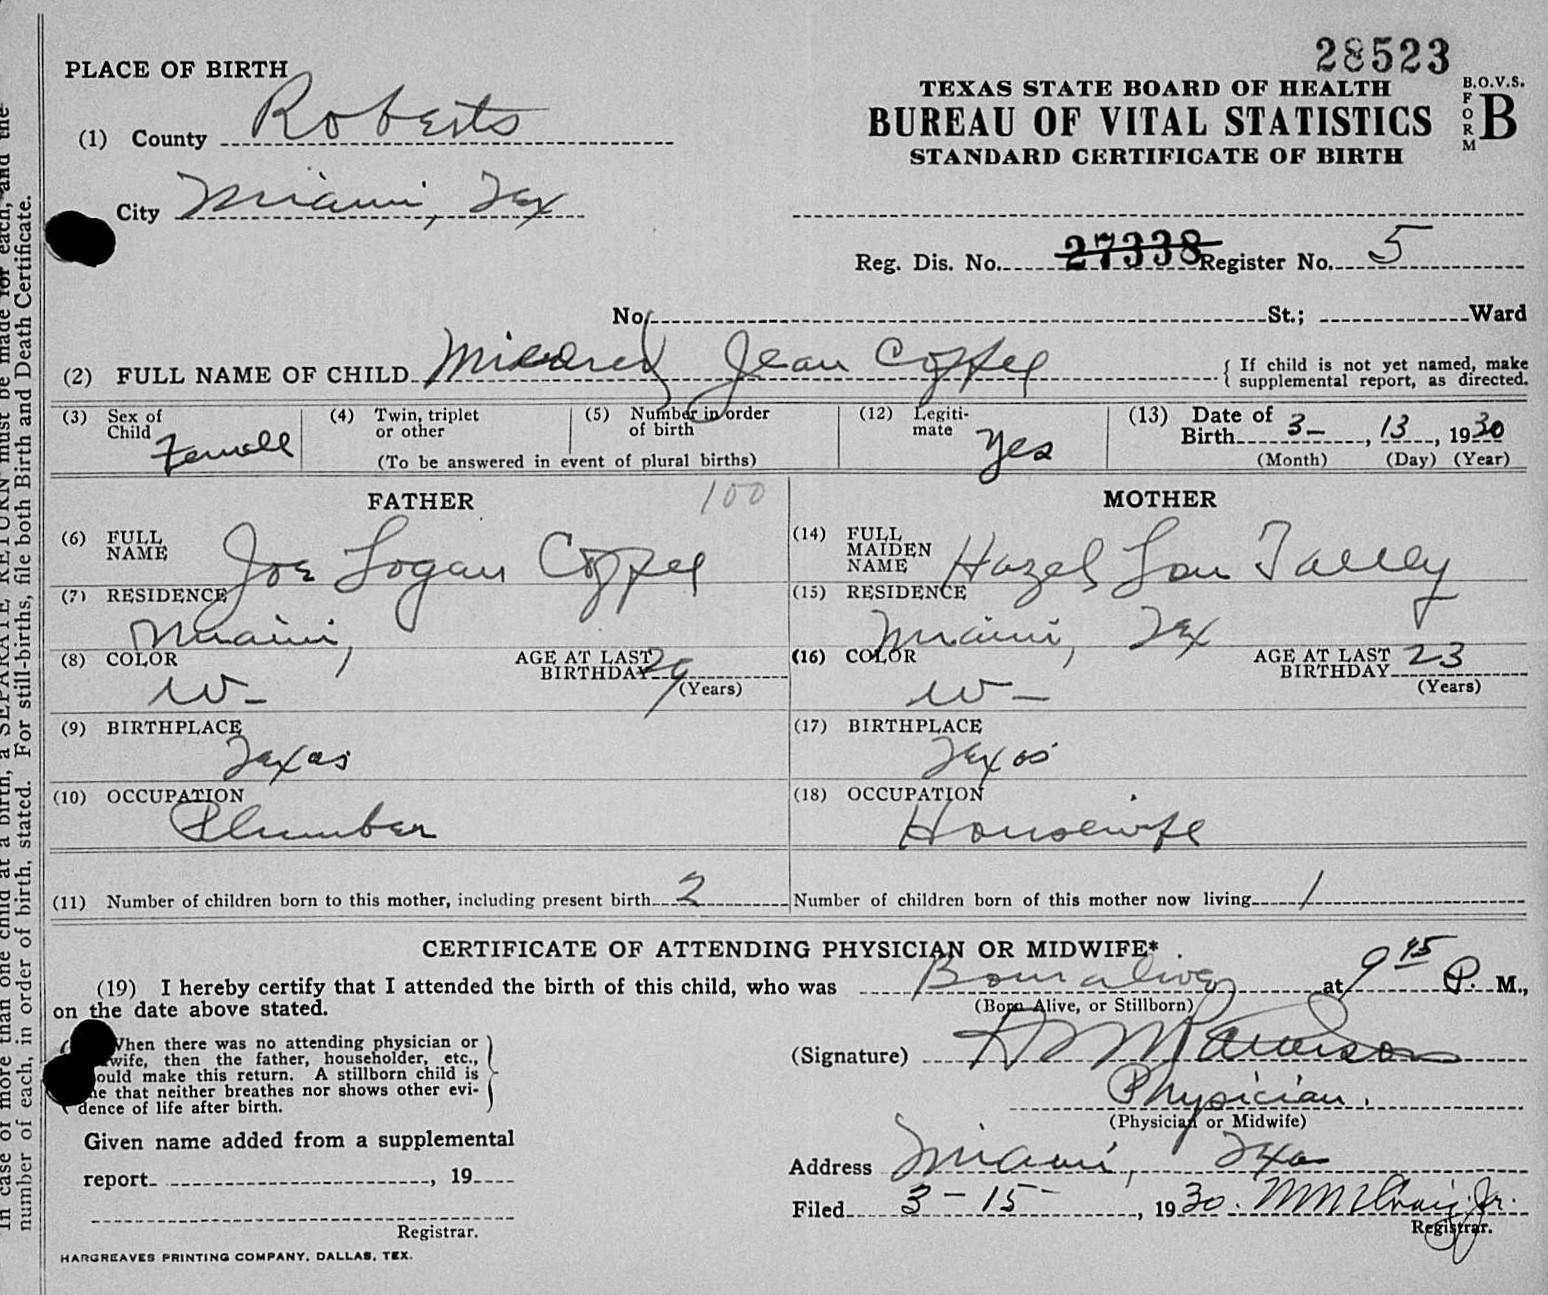 28523
PLACE OF BIRTH
TEXAS STATE BOARD OF HEALTH
B.O.V.S.
FORM B
BUREAU OF VITAL STATISTICS
(1) County Roberts
STANDARD CERTIFICATE OF BIRTH
City Miami, Tex
Reg. Dis. No. 27338 Register No. 5
No. St.; Ward
(2) FULL NAME OF CHILD Mildred Jean Coffee
{ If child is not yet named, make
supplemental report, as directed.
(3) Sex of Child Femall
(4) Twin, triplet or other
(5) Number in order of birth
(To be answered in event of plural births)
(12) Legitimate yes
(13) Date of Birth 3-, 13, 1930
(Month) (Day) (Year)
FATHER 100
MOTHER
(6) FULL NAME Joe Logan Coffee
(14) FULL MAIDEN NAME Hazel Lou Talley
(7) RESIDENCE Miami,
(15) RESIDENCE Miami, Tex
(8) COLOR W- AGE AT LAST BIRTHDAY 29 (Years)
(16) COLOR W- AGE AT LAST BIRTHDAY 23 (Years)
(9) BIRTHPLACE Texas
(17) BIRTHPLACE Texas
(10) OCCUPATION Plumber
(18) OCCUPATION Housewife
(11) Number of children born to this mother, including present birth 2
Number of children born of this mother now living 1
CERTIFICATE OF ATTENDING PHYSICIAN OR MIDWIFE*
(19) I hereby certify that I attended the birth of this child, who was Born alive at 9 45 P. M.,
(Born Alive, or Stillborn)
on the date above stated.
When there was no attending physician or
wife, then the father, householder, etc.,
ould make this return. A stillborn child is
ne that neither breathes nor shows other evi-
dence of life after birth.
(Signature)
Physician.
(Physician or Midwife)
Given name added from a supplemental
report , 19
Address Miami, Texas
Filed 3-15, 1930.
Registrar.
Registrar.
HARGREAVES PRINTING COMPANY, DALLAS, TEX.
In case of more than one child at a birth, a SEPARATE RETURN must be made for each, and the
number of each, in order of birth, stated. For still-births, file both Birth and Death Certificate.